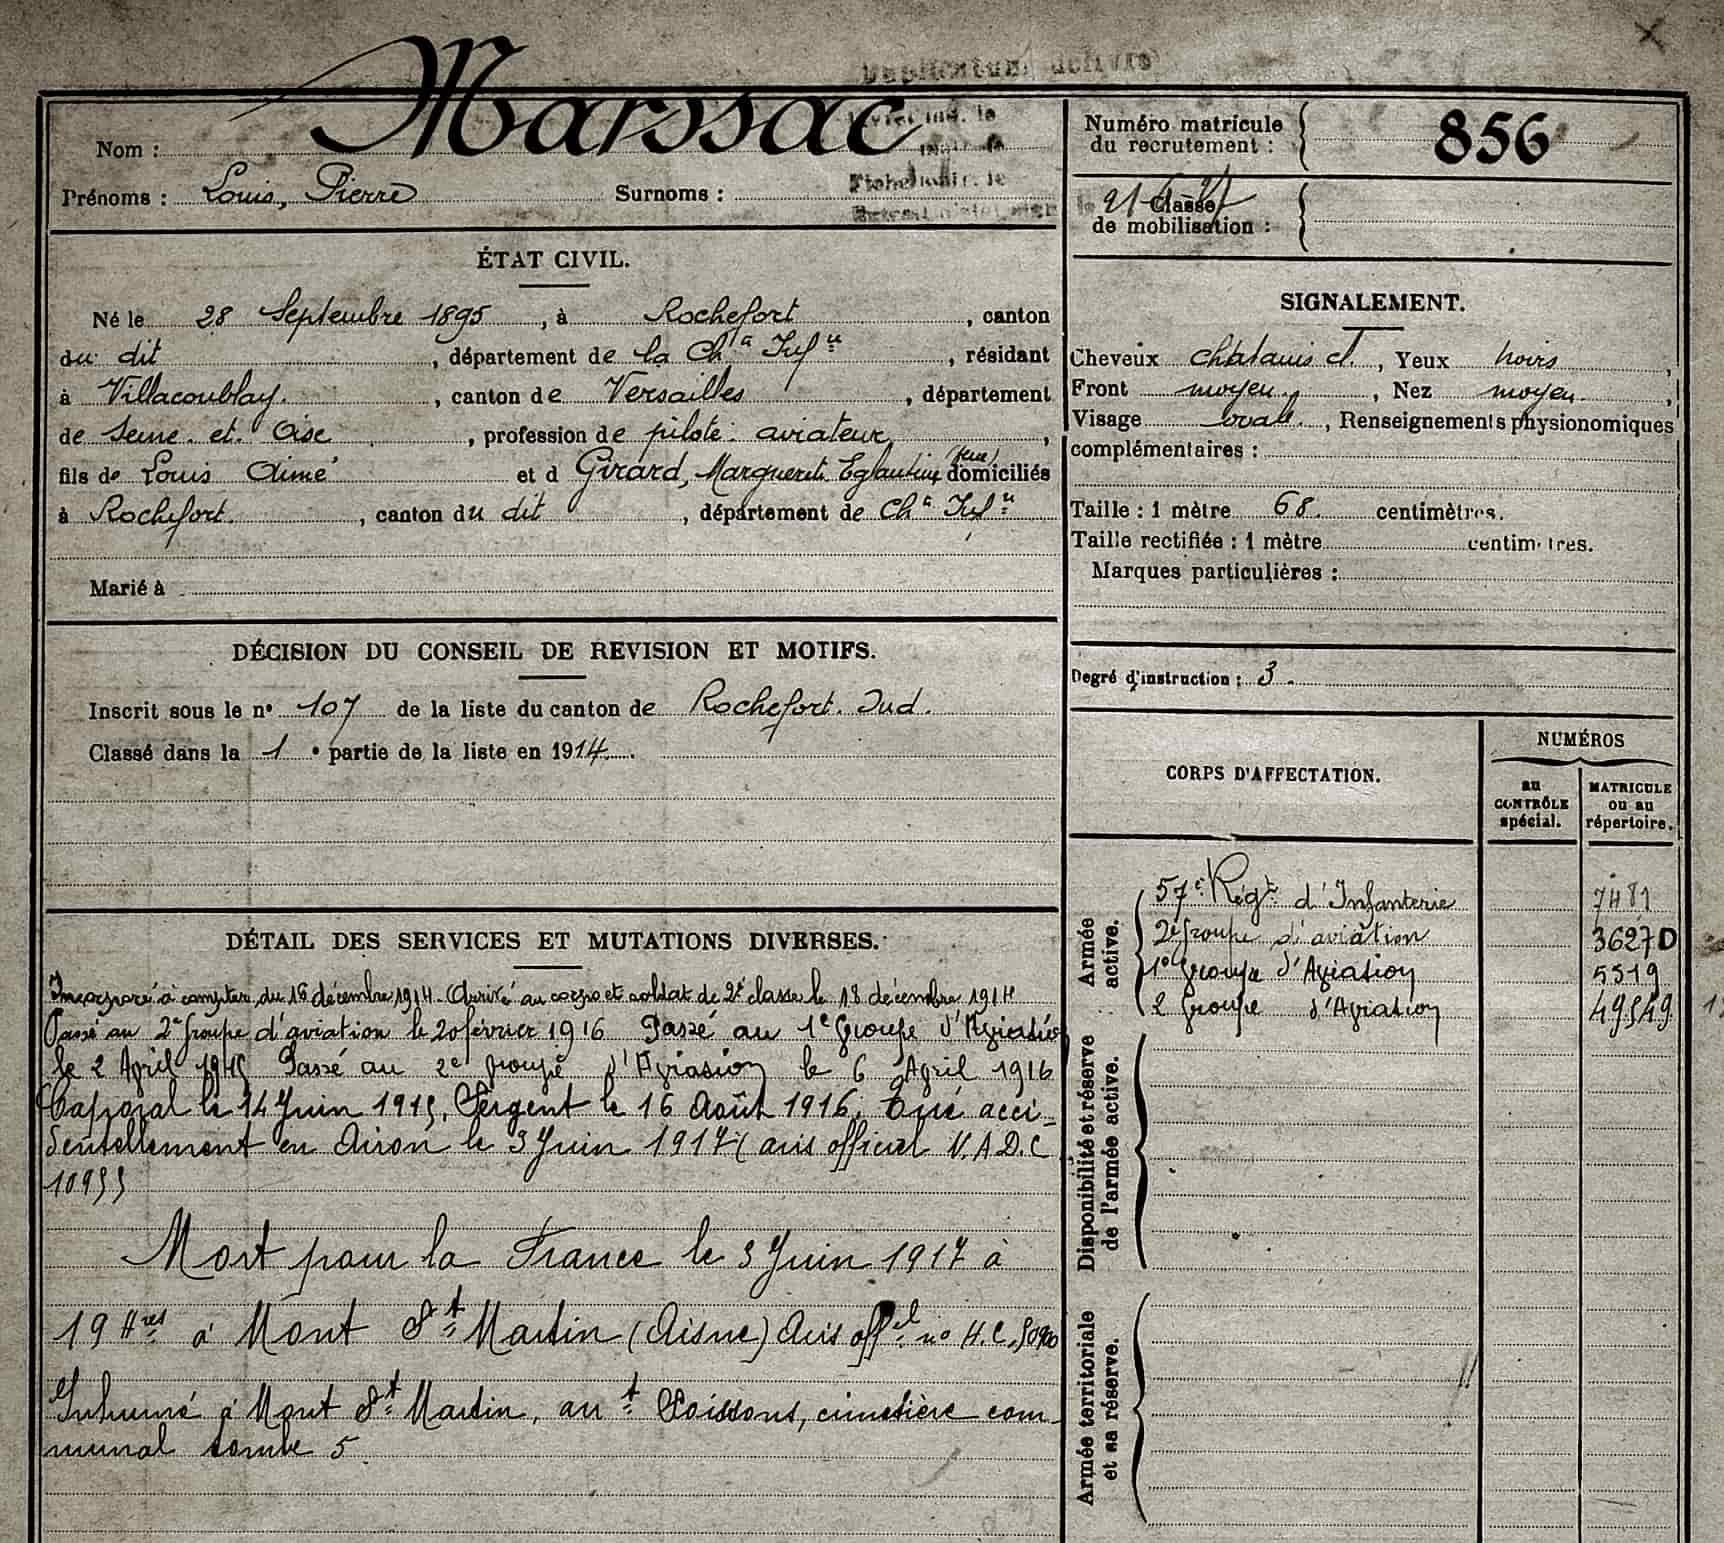 Marssac
Nom :
Prénoms : Louis, Pierre Surnoms :
Numéro matricule
du recrutement : 856
Classe
de mobilisation :
ÉTAT CIVIL.
Né le 28 Septembre 1895, à Rochefort, canton
du dit, département de la Ch^te Inf^re, résidant
à Villacoublay, canton de Versailles, département
de Seine et Oise, profession de pilote aviateur,
fils de Louis Aimé et d Girard, Marguerite Eglantine domiciliés
à Rochefort, canton du dit, département de Ch^te Inf^re
Marié à
SIGNALEMENT.
Cheveux châtains, Yeux noirs,
Front moyen, Nez moyen,
Visage oval, Renseignements physionomiques
complémentaires :
Taille : 1 mètre 68. centimètres.
Taille rectifiée : 1 mètre centimètres.
Marques particulières :
Degré d'instruction : 3.
DÉCISION DU CONSEIL DE REVISION ET MOTIFS.
Inscrit sous le n° 107 de la liste du canton de Rochefort. Sud.
Classé dans la 1 e partie de la liste en 1914.
CORPS D'AFFECTATION.
NUMÉROS
au
CONTRÔLE
spécial.
MATRICULE
ou au
répertoire.
Armée
active.
57e Régt d'Infanterie 7481
2e groupe d'aviation 3627D
1e Groupe d'Aviation 5519
2 Groupe d'Aviation 49549
Disponibilité et réserve
de l'armée active.
Armée territoriale
et sa réserve.
DÉTAIL DES SERVICES ET MUTATIONS DIVERSES.
Incorporé à compter du 16 décembre 1914. Arrivé au corps et soldat de 2e classe le 18 décembre 1914
Passé au 2e Groupe d'aviation le 20 février 1916 Passé au 1e Groupe d'Aviation
le 2 Avril Passé au 2e groupe d'Aviation le 6 Avril 1916
Caporal le 14 Juin 1915, Sergent le 16 Août 1916. Tué acci-
dentellement en avion le 3 Juin 1917 (avis officiel V.A.D.C
10955
Mort pour la France le 3 Juin 1917 à
19 Hres à Mont St Martin (Aisne) Avis offel no H.C.
Inhumé à Mont St Martin, art Soissons, cimetière com-
munal tombe 5